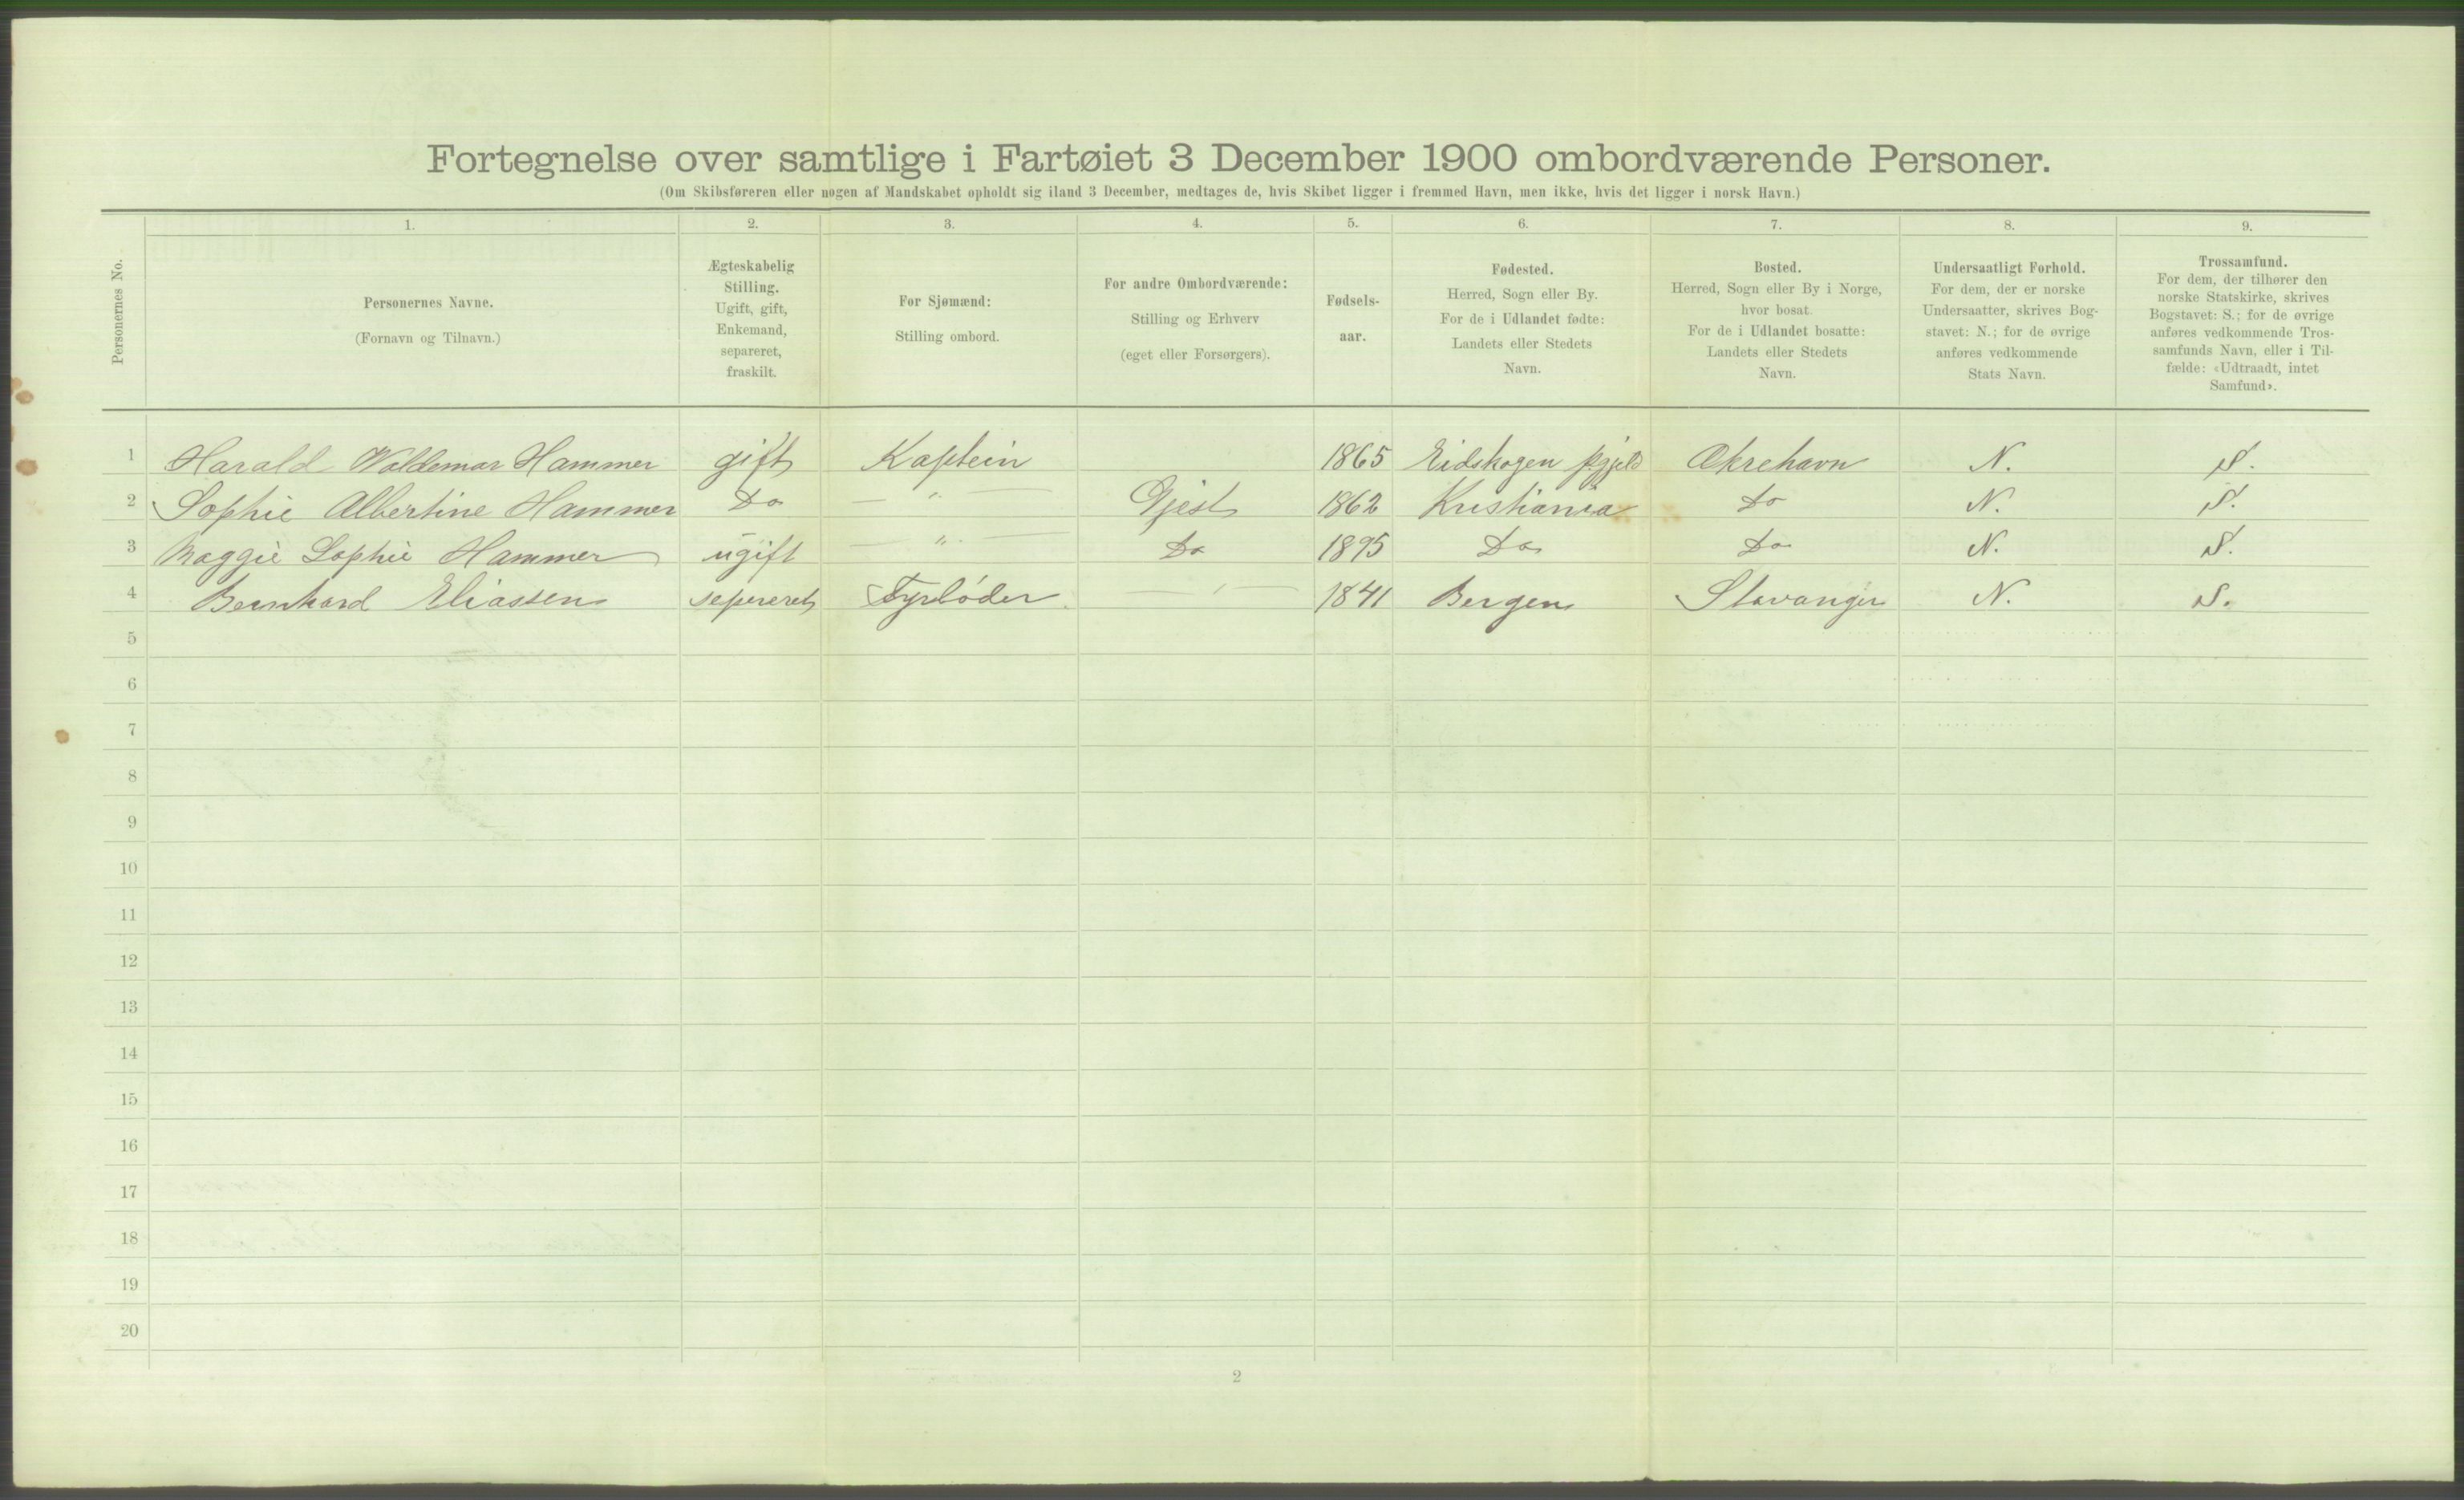 Fortegnelse over samtlige i Fartøiet 3 December 1900 ombordværende Personer.
(Om Skibsføreren eller nogen af Mandskabet opholdt sig iland 3 December, medtages de, hvis Skibet ligger i fremmed Havn, men ikke, hvis det ligger i norsk Havn.)
Personernes No.
1. 2. 3. 4. 5. 6. 7. 8. 9.
Personernes Navne.
(Fornavn og Tilnavn.)
Ægteskabelig
Stilling.
Ugift, gift,
Enkemand,
separeret,
fraskilt.
For Sjømænd:
Stilling ombord.
For andre Ombordværende:
Stilling og Erhverv
(eget eller Forsørgers).
Fødsels-
aar.
Fødested.
Herred, Sogn eller By.
For de i Udlandet fødte:
Landets eller Stedets
Navn.
Bosted.
Herred, Sogn eller By i Norge,
hvor bosat.
For de i Udlandet bosatte:
Landets eller Stedets
Navn.
Undersaatligt Forhold.
For dem, der er norske
Undersaatter, skrives Bog-
stavet: N.; for de øvrige
anføres vedkommende
Stats Navn.
Trossamfund.
For dem, der tilhører den
norske Statskirke, skrives
Bogstavet: S.; for de øvrige
anføres vedkommende Tros-
samfunds Navn, eller i Til-
fælde: «Udtraadt, intet
Samfund».
1 Harald Waldemar Hammer gift Kaptein 1865 Eidskogen pgjeld Akrehavn N. S.
2 Sophie Albertine Hammer Do — " — Gjest 1862 Kristiania Do N. S.
3 Maggie Sophie Hammer ugift — " — Do 1895 Do Do N. S.
4 Bernhard Eliassen sepereret Fyrbøder — 1841 Bergen Stavanger N. S.
5
6
7
8
9
10
11
12
13
14
15
16
17
18
19
20
2